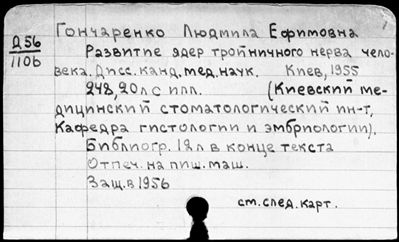 Гончаренко Людмила Ефимовна
Д56
1106
Развитие ядер тройничного нерва чело-
века. Дисс. канд. мед. наук. Киев, 1955
248, 20л с илл. (Киевский ме-
дицинский стоматологический ин-т,
Кафедра гистологии и эмбриологии).
Библиогр. 12л в конце текста
Отпеч. на пиш. маш.
Защ. в 1956
см. след. карт.